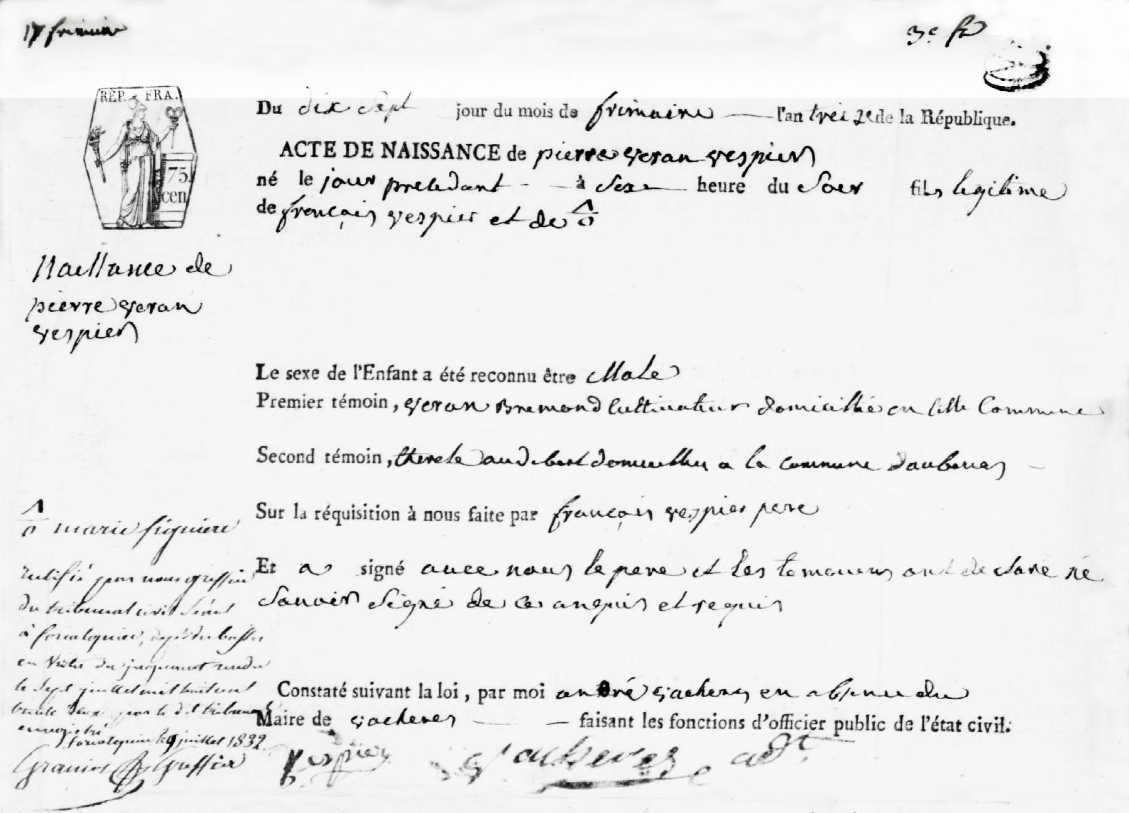 17 frimaire
3e f
RÉP. FRA.
75
cen
Du dix sept jour du mois de frimaire l'an treize de la République.
ACTE DE NAISSANCE de pierre veran vespier
né le jour precedant à sixe heure du soir fils legitime
de françois vespier et de
Naissance de
pierre veran
vespier
Le sexe de l'Enfant a été reconnu être Male
Premier témoin, veran Bremond cultivateur domicillié en cette Commune
Second témoin, therese audibert domicilliee a la commune daubenas
Sur la réquisition à nous faite par françois vespier pere
Et a signé avec nous le pere et les temoins ont declaré né
savoir signé de ce anquis et requis
marie figuiere
rectifié par nous greffier
du tribunal civil séant
à forcalquier, des basses
en vertu du jugement rendu
le sept juillet mil huit cent
trente deux par le dit tribunal
enregistré
forcalquier le 9 juillet 1832
greffier
Constaté suivant la loi, par moi andré vacheres en absence du
Maire de vacheres faisant les fonctions d'officier public de l'état civil.
vespier vacheres adt